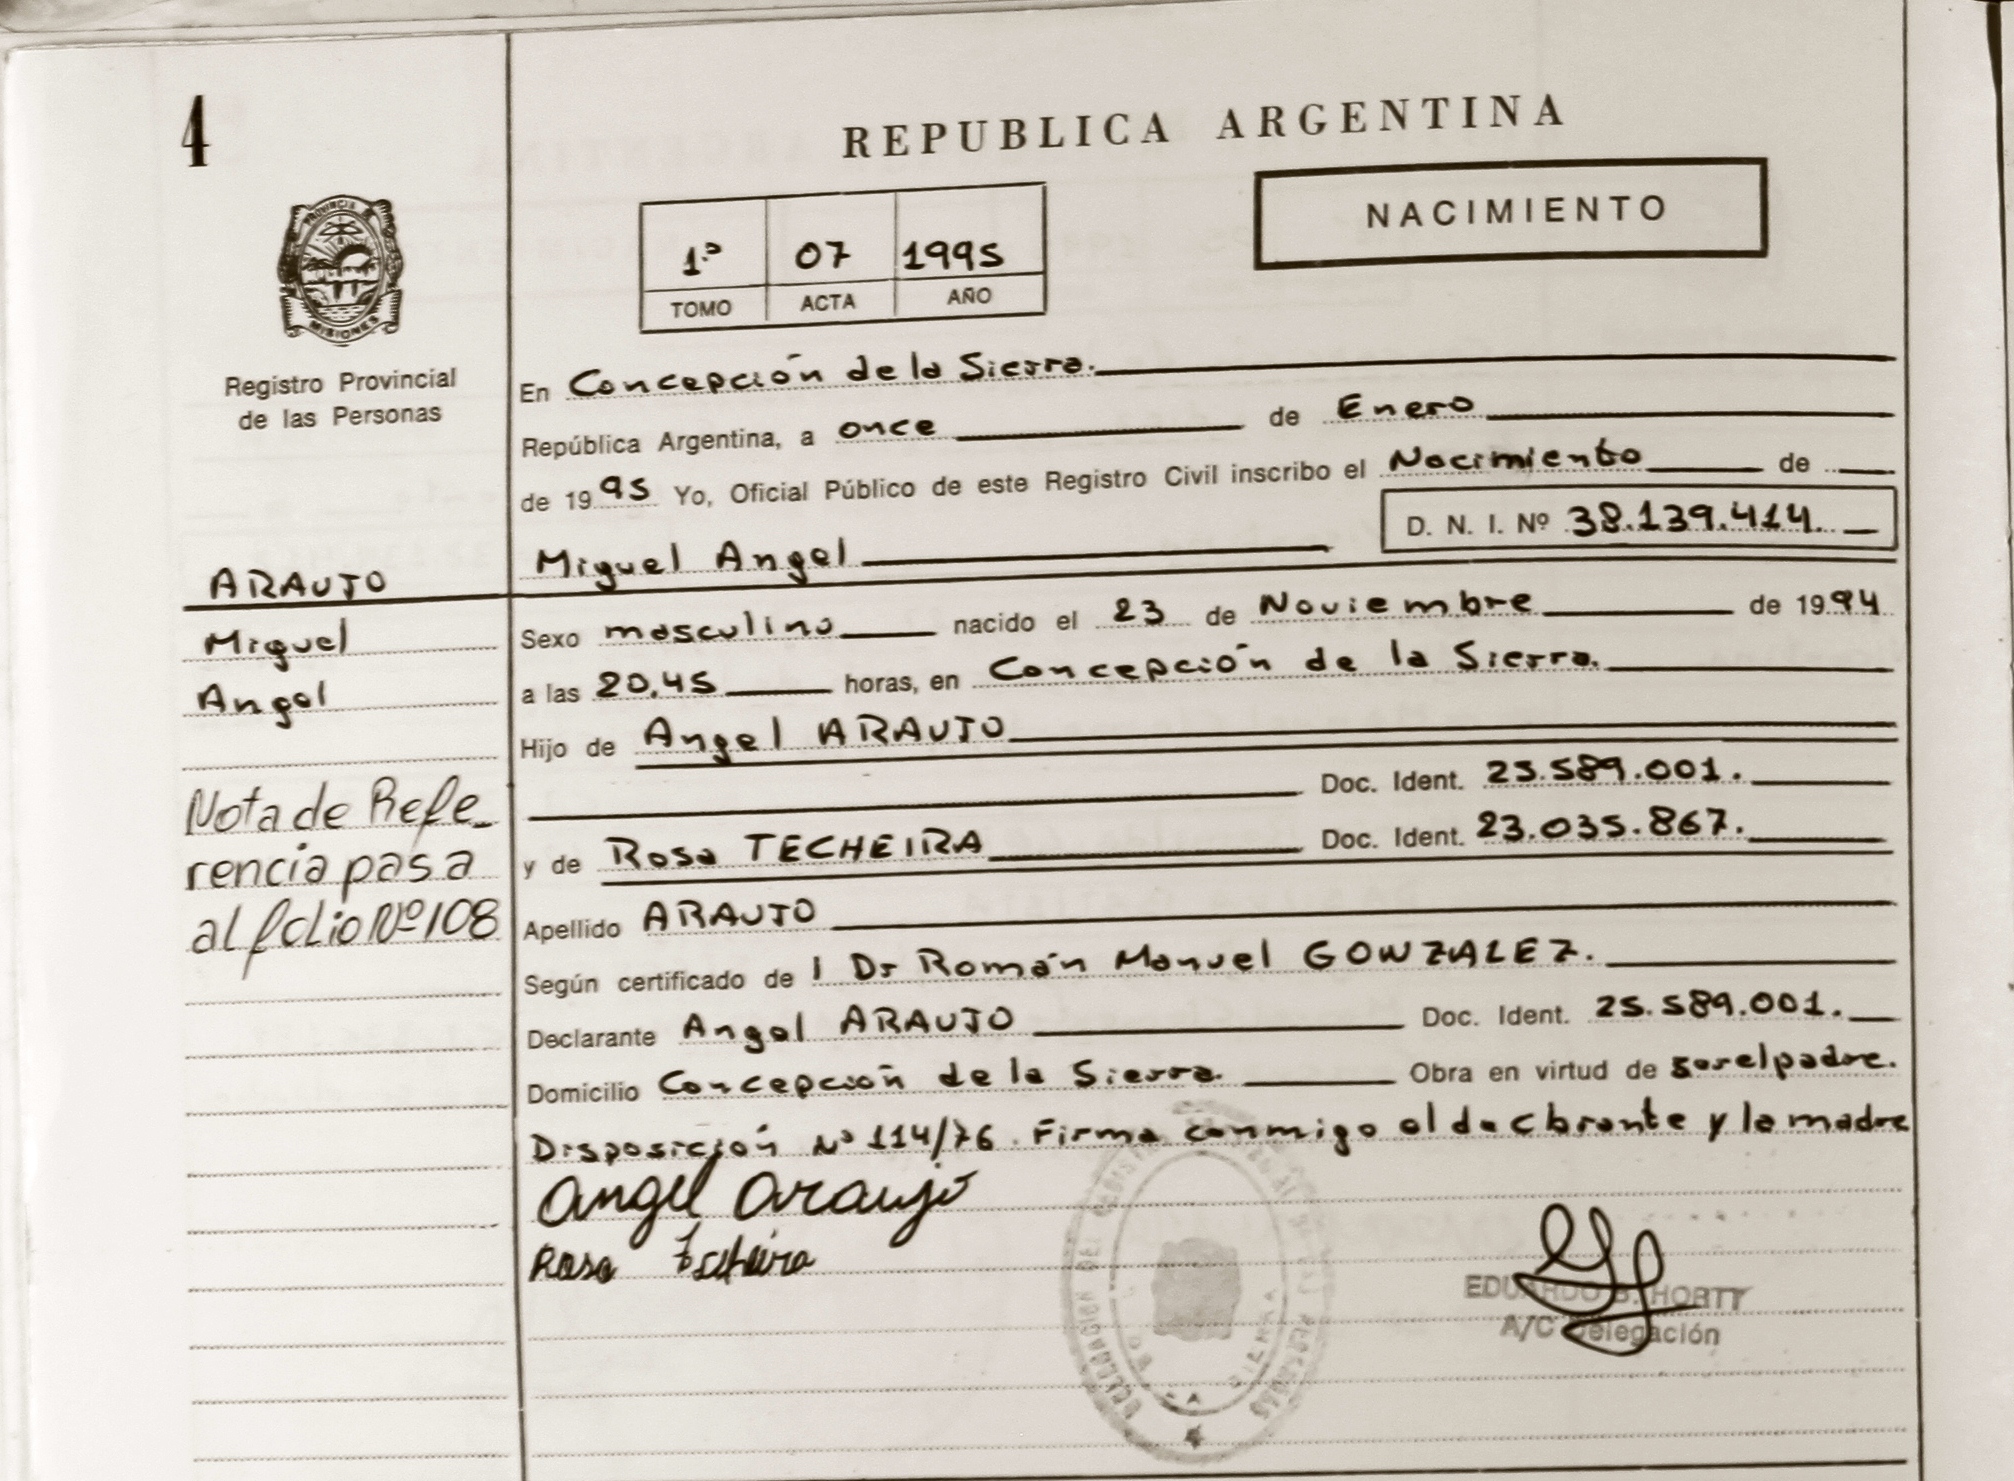 4
REPUBLICA ARGENTINA
NACIMIENTO
1º 07 1995
TOMO ACTA AÑO
PROVINCIA DE
MISIONES
Registro Provincial
de las Personas
En Concepción de la Sierra.
República Argentina, a once de Enero
de 1995 Yo, Oficial Público de este Registro Civil inscribo el Nacimiento de
D. N. I. Nº 38.139.414.
Miguel Angel
ARAUJO
Miguel
Angel
Sexo masculino nacido el 23 de Noviembre de 1994
a las 20,45 horas, en Concepción de la Sierra.
Hijo de Angel ARAUJO
Doc. Ident. 25.589.001.
y de Rosa TECHEIRA Doc. Ident. 23.035.867.
Nota de Refe-
rencia pasa
al folio Nº 108
Apellido ARAUJO
Según certificado de l Dr Román Manuel GONZALEZ.
Declarante Angel ARAUJO Doc. Ident. 25.589.001.
Domicilio Concepción de la Sierra. Obra en virtud de ser el padre.
Disposición Nº 114/76. Firma conmigo el declarante y la madre
Angel Araujo
Rosa Techeira
EDUARDO B. HORTT
A/C Delegación
DELEGACION DEL REGISTRO
PERSONAS
SIERRA